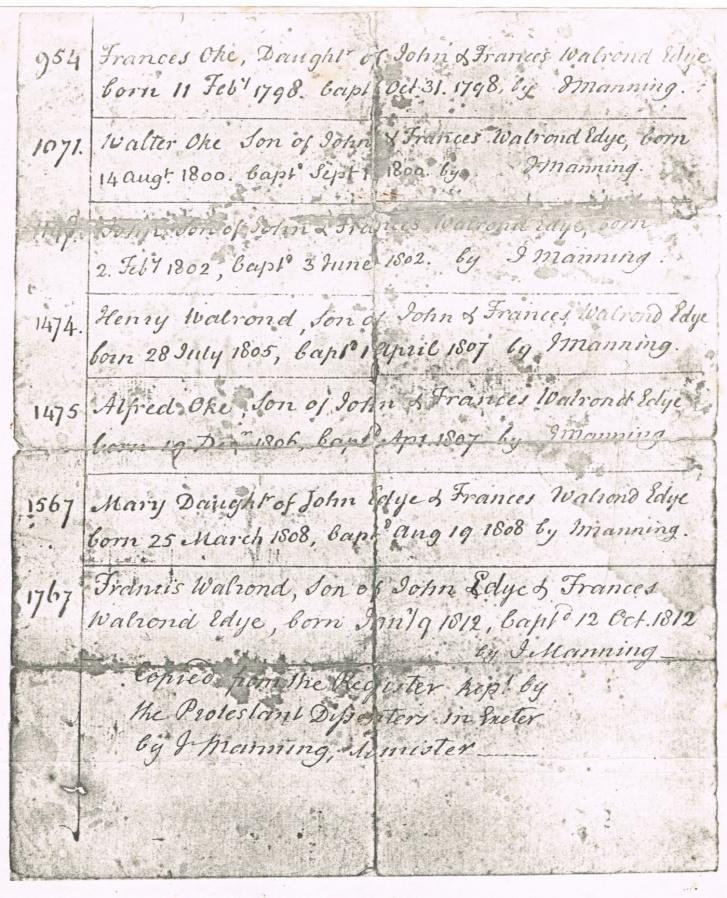 954 Frances Oke, Daughtr of John & Frances Walrond Edye
born 11 Feby 1798. bapt Oct 31. 1798, by JManning.
1071. Walter Oke Son of John & Frances Walrond Edye, born
14 Augt 1800. baptd Sept 1 1800 by JManning.
John Son of John & Frances Walrond Edye, born
2. Feby 1802, baptd 3 June 1802. by J Manning.
1474. Henry Walrond, Son of John & Frances Walrond Edye
born 28 July 1805, baptd 1 April 1807 by JManning.
1475 Alfred Oke, Son of John & Frances Walrond Edye
born 19 Decr 1806, baptd Apr. 1807 by JManning
1567 Mary Daughtr of John Edye & Frances Walrond Edye
born 25 March 1808, baptd Aug 19 1808 by JManning.
1767 Francis Walrond, Son of John Edye & Frances
Walrond Edye, born Jany 9 1812, baptd 12 Oct. 1812
by J. Manning
Copied from the Register kept by
the Protestant Dissenters in Exeter
by J Manning, Minister